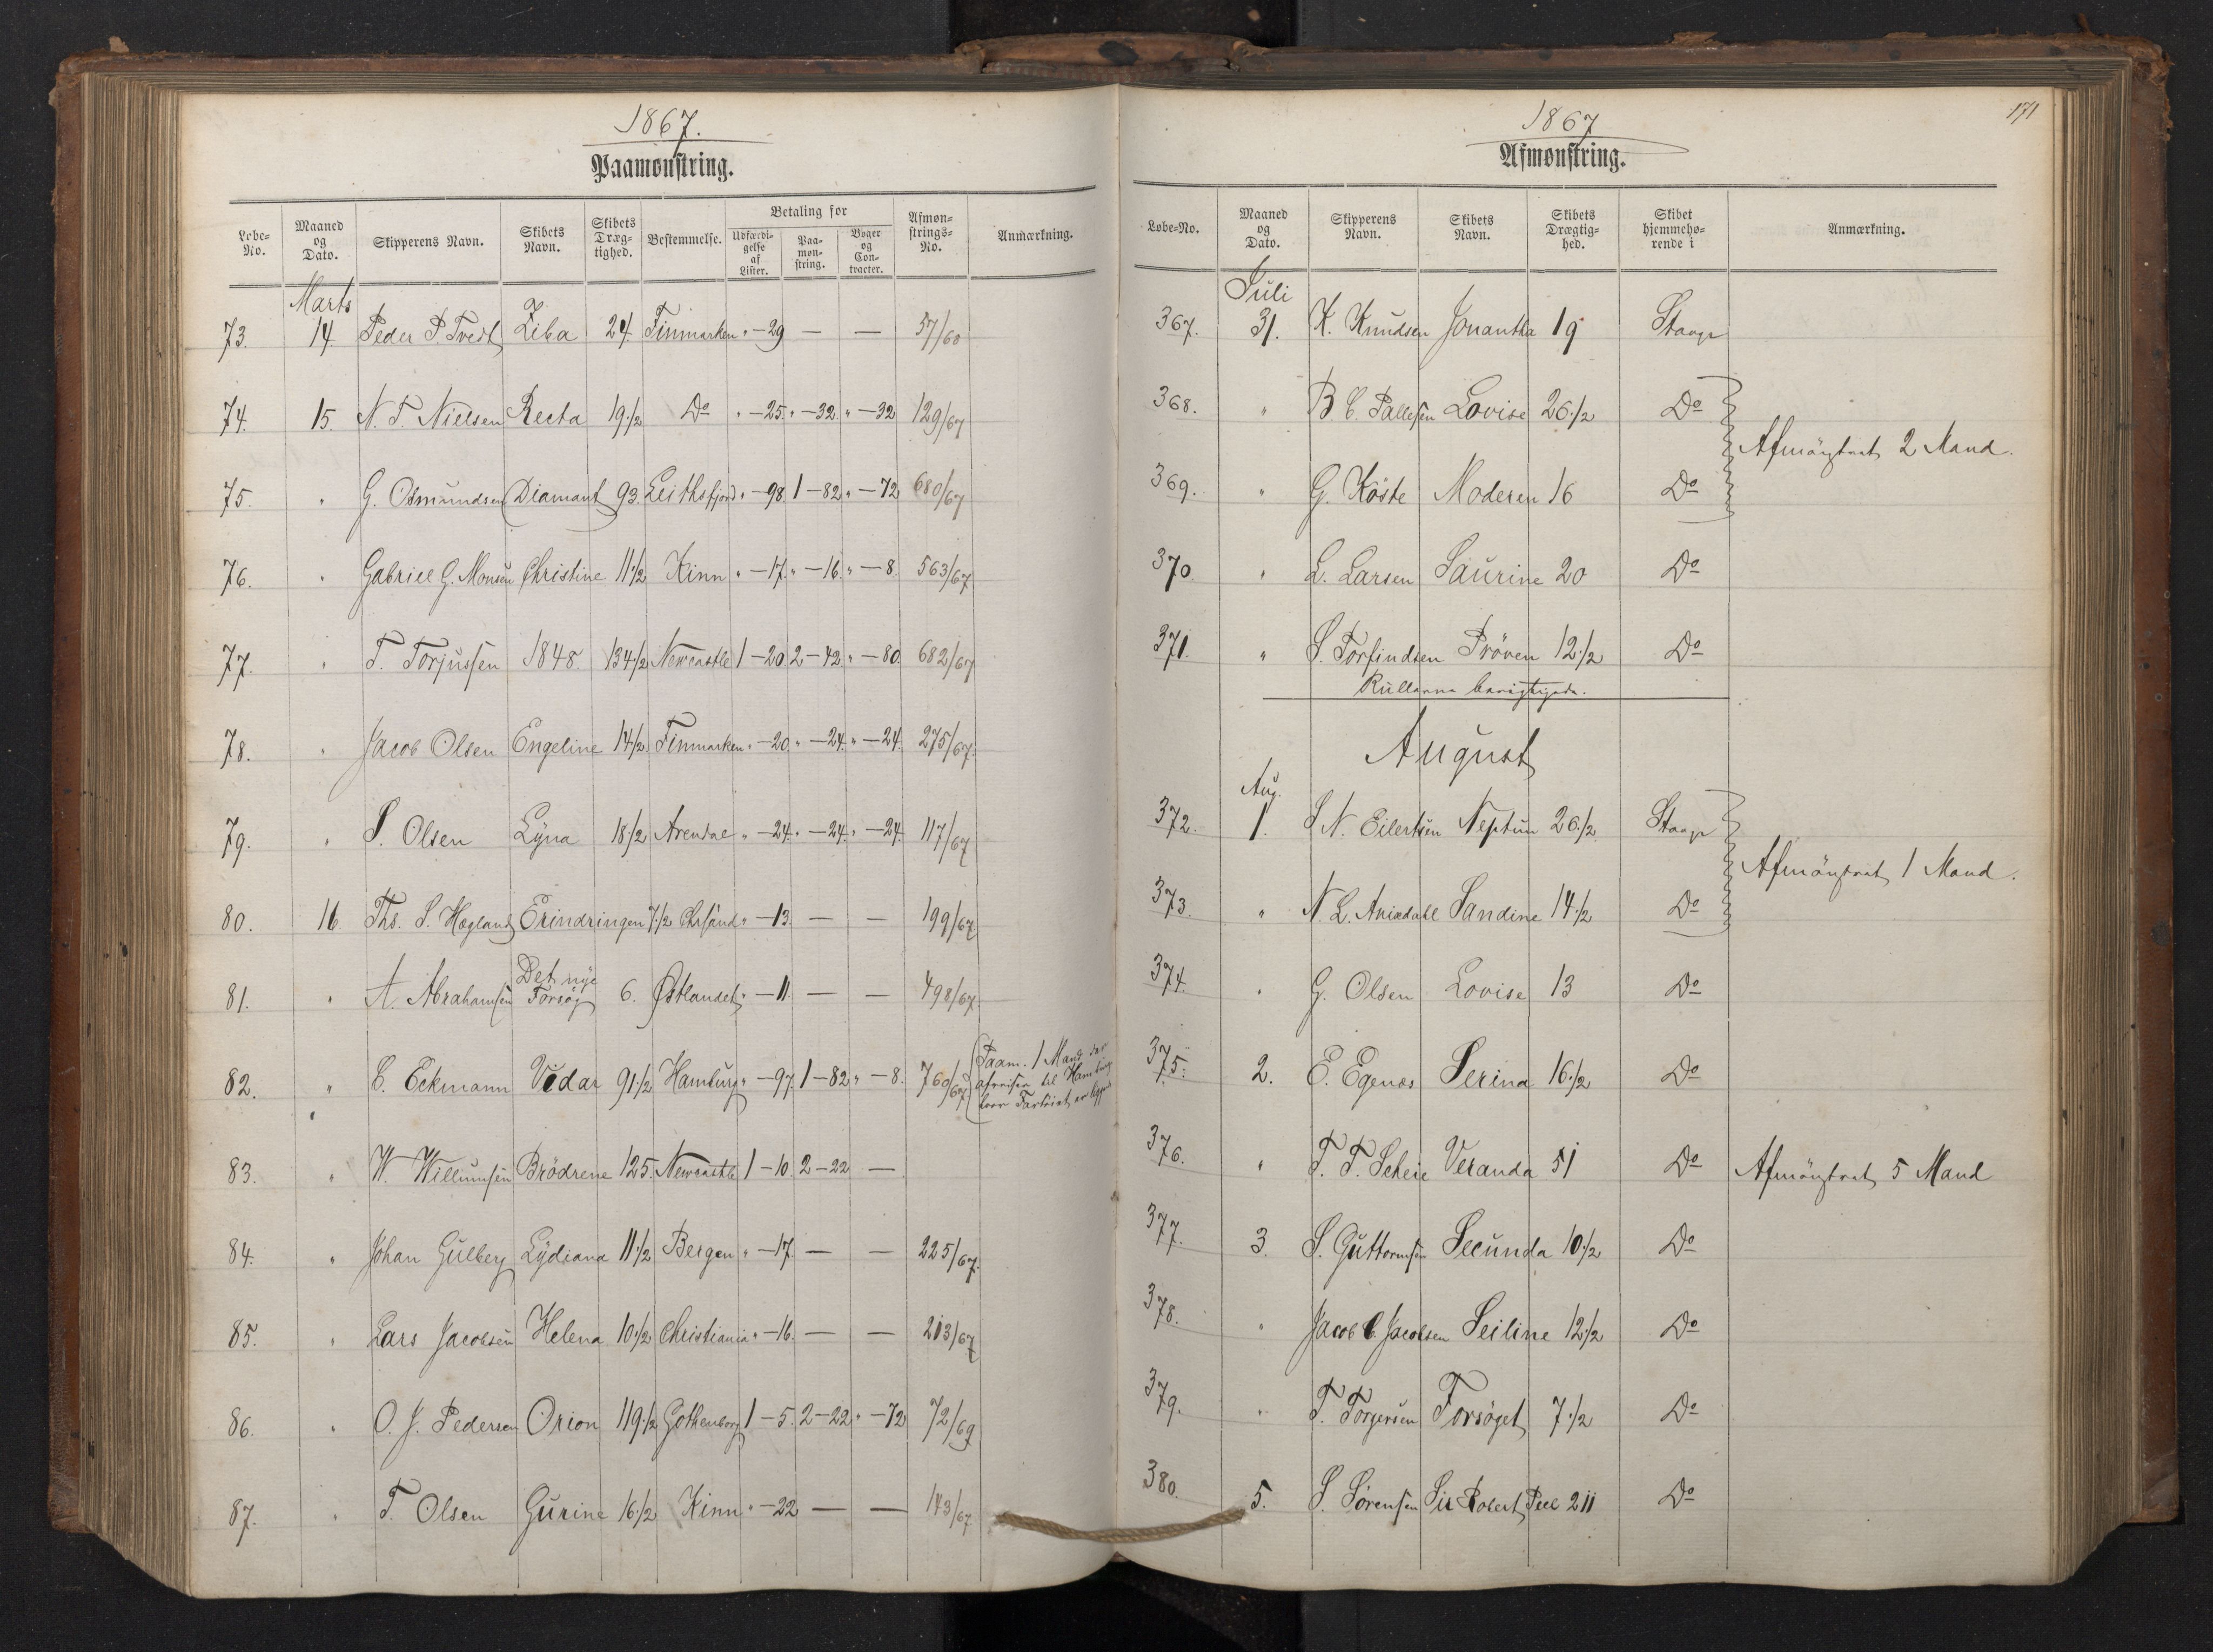 1867.
Paamønstring.
Løbe-No. Maaned og Dato. Skipperens Navn. Skibets Navn. Skibets Dræg-tighed. Bestemmelse. Betaling for Udfærdi-gelse af Lister. Paa-møn-string. Bøger og Con-tracter. Afmøn-strings-No. Anmærkning.
Marts
73. 14. Peder P. Tvedt Ziba 24. Finmarken " - 29 — — 57/60
74. 15. N. T. Nielsen Recta 19 1/2 Do " - 25. " - 32. " - 32 129/67
75. " G. Osmundsen Diamant 93. Leithsfjord " - 98. 1 - 82. " - 72 680/67
76. " Gabriel G. Monsen Christine 11 1/2 Kinn " - 17. " - 16. " - 8. 563/67
77. " T. Torjussen 1848. 134 1/2 Newcastle 1 - 20. 2 - 42. " - 80. 682/67
78. " Jacob Olsen Engeline 14 1/2 Finmarken " - 20. " - 24. " - 24. 275/67.
79. " S. Olsen Lyna 18 1/2 Arendal " - 24. " - 24. " - 24. 117/67
80. 16. Ths. S. Høgland Erindringen 7 1/2 Chrsand " - 13. — — 199/67
81. " A. Abrahamsen Det nye Forsøg 6. Østlandet " - 11. — — 498/67.
82. " C. Eckmann Vidar 91 1/2 Hamburg " - 97. 1 - 82. " - 8. 760/67 Paam. 1 Mand der afreiser til Hamburg hvor Fartöiet er
83. " W. Willumsen Brödrene 125. Newcastle 1 - 10. 2 - 22 —
84. " Johan Gulberg Lydiana 11 1/2 Bergen " - 17. — — 225/67.
85. " Lars Jacobsen Helena 10 1/2 Christiania " - 16. — — 213/67
86. " O. J. Pedersen Orion 119 1/2 Gothenborg 1 - 5. 2 - 22 " - 72 72/69
87. " T. Olsen Gurine 16 1/2 Kinn " - 22 — — 143/67
171
1867
Afmønstring.
Løbe-No. Maaned og Dato. Skipperens Navn. Skibets Navn. Skibets Drægtig-hed. Skibet hjemmehø-rende i Anmærkning.
Juli
367. 31. K. Knudsen Jonantha 19 Stavgr
368. " B C. Pallesen Lovise 26 1/2 Do
Afmönstret 2 Mand.
369. " G. Köste Moderen 16 Do
370. " L. Larsen Laurine 20 Do
371. " S. Torfindsen Pröven 12 1/2 Do
Rullerne berigtigede.
August
Aug.
372. 1. S N. Eilertsen Neptun 26 1/2 Stavgr
Afmönstret 1 Mand.
373. " N. L. Aniedahl Sandine 14 1/2 Do
374. " G. Olsen Lovise 13 Do
375. 2. E. Egenæs Serina 16 1/2 Do
376. " T. T. Scheie Veranda 51 Do Afmönstret 5 Mand
377. 3. S. Guttormsen Secunda 10 1/2 Do
378. " Jacob C. Jacobsen Seiline 12 1/2 Do
379. " T. Torgersen Forsöget 7 1/2 Do
380. 5. S. Sörensen Sir Robert Peel 211 Do